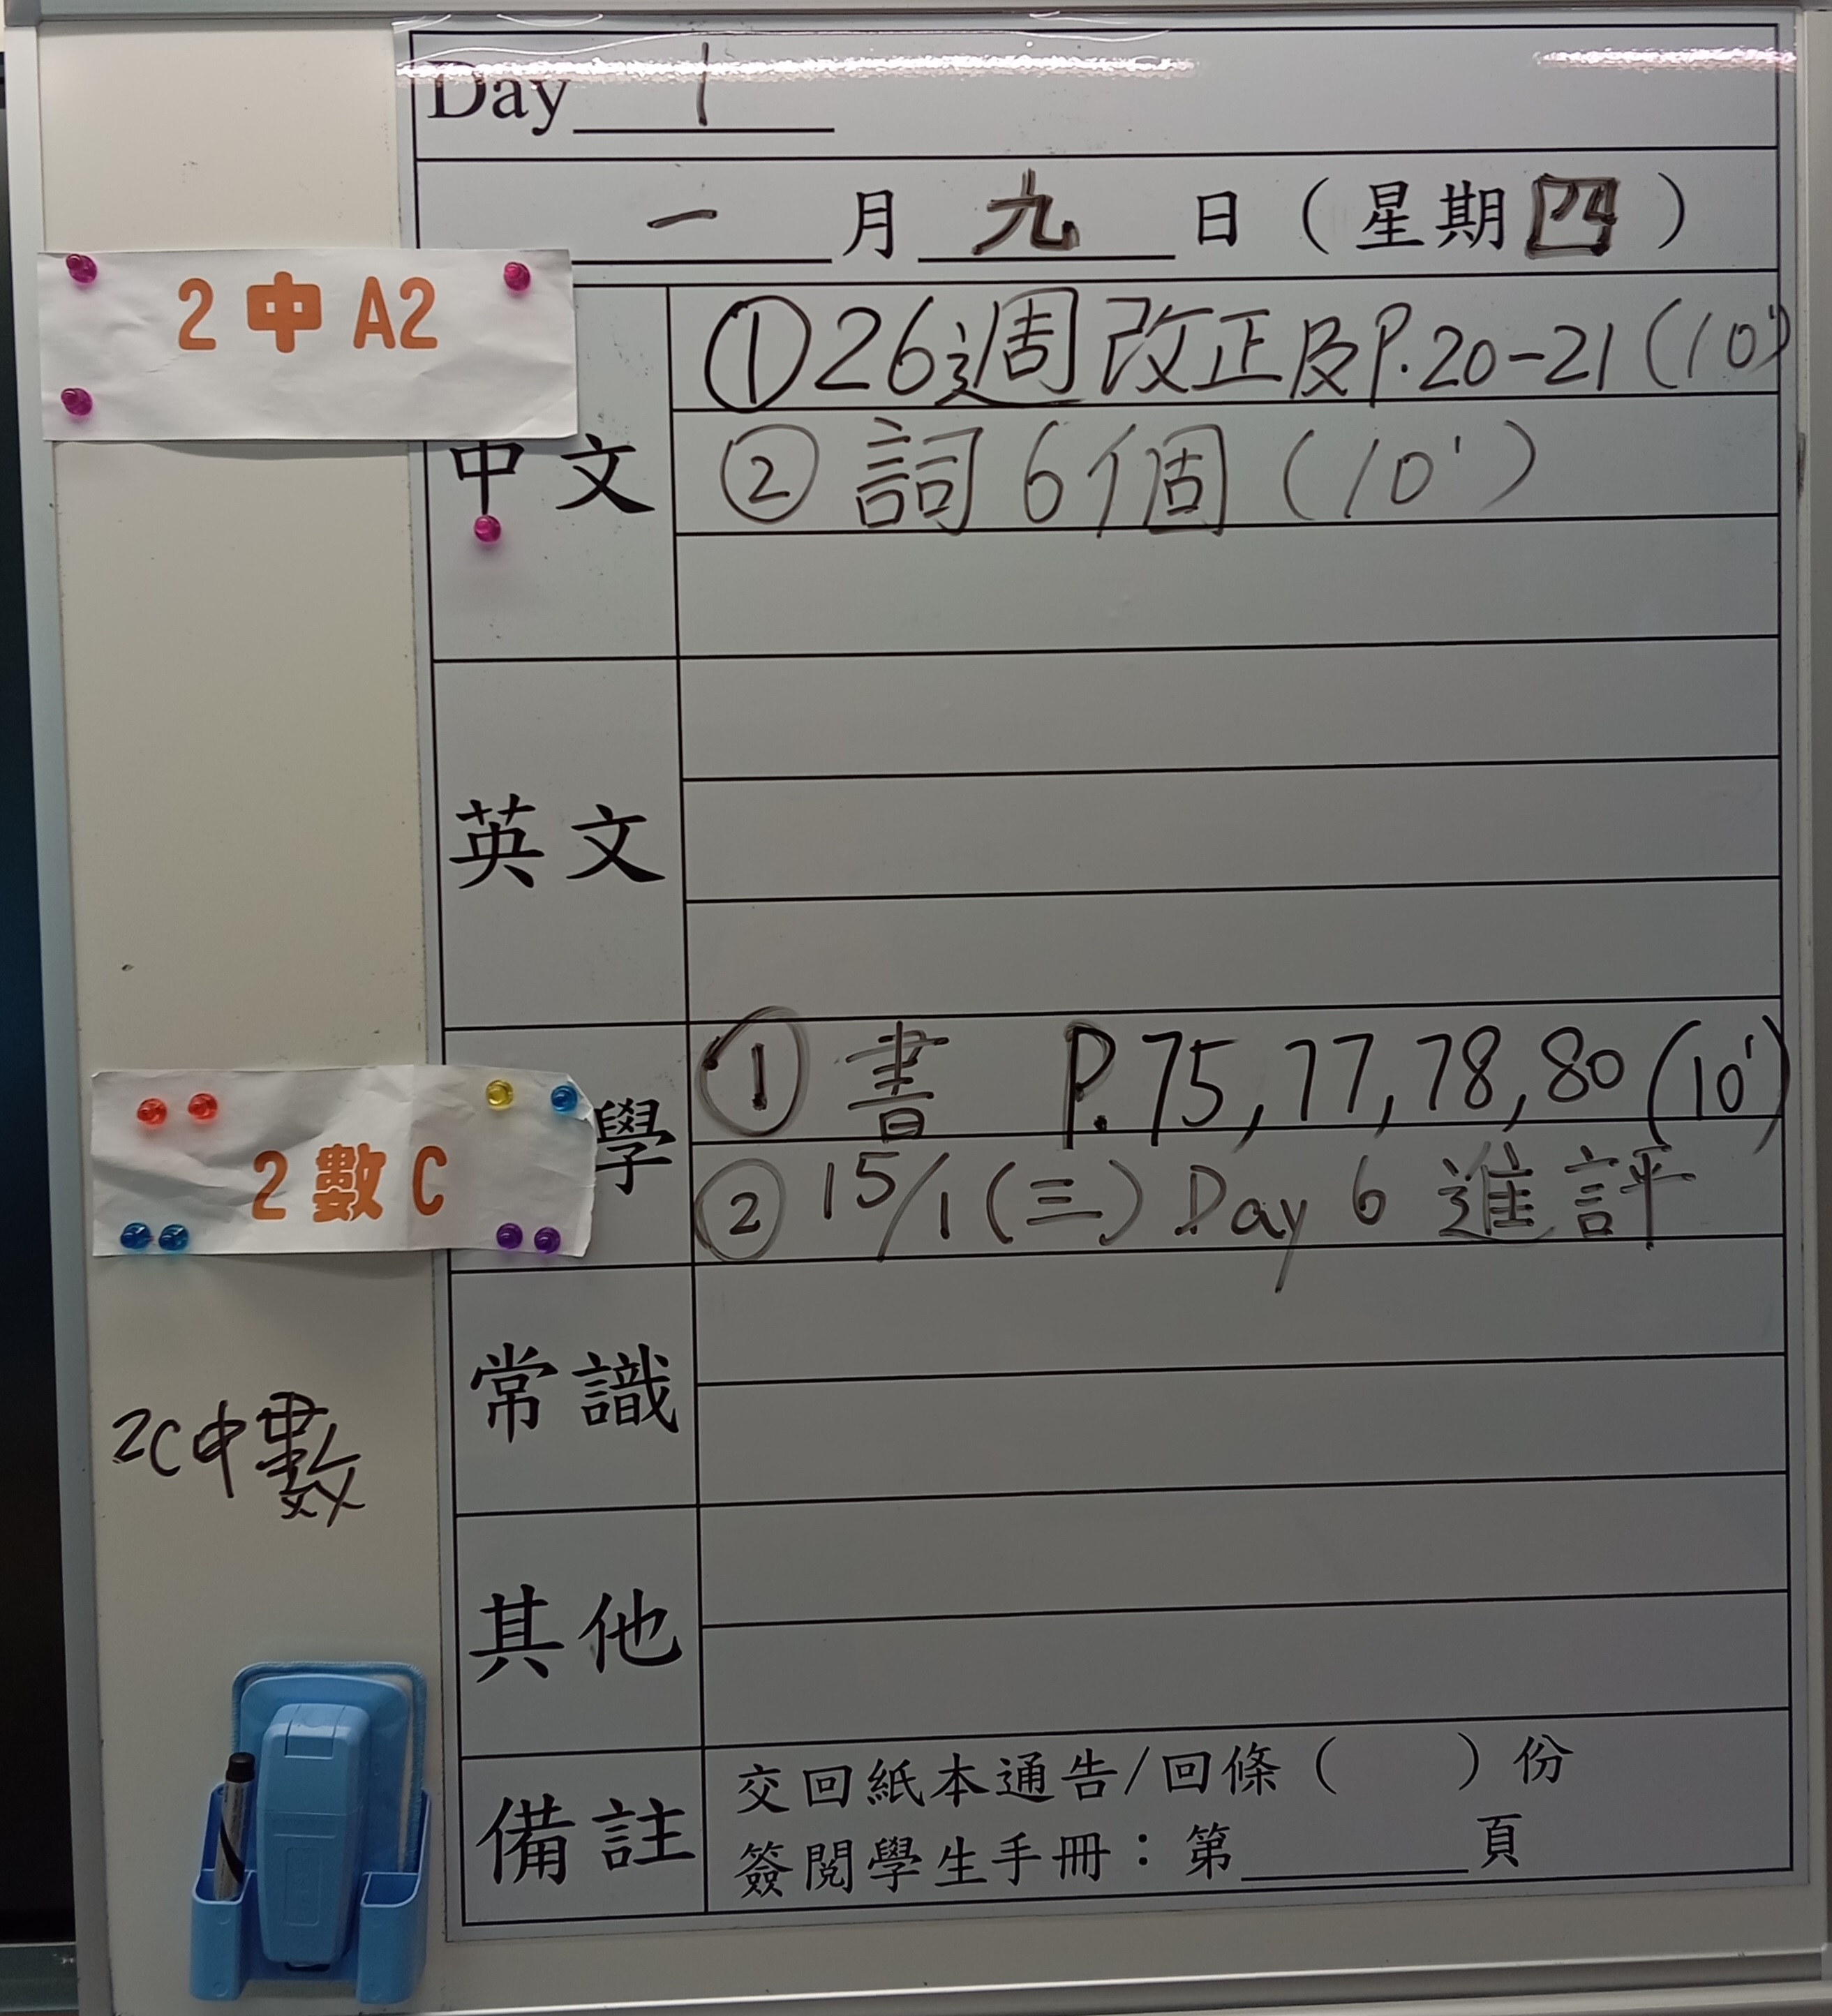 Day 1
一月九日（星期四）
2中A2
中文
①26週改正及P.20-21(10')
②詞6個(10')
英文
2數C
學
①書 P.75,77,78,80(10')
②15/1(三)Day 6 進評
常識
2C中數
其他
備註
交回紙本通告/回條（ ）份
簽閱學生手冊：第______頁